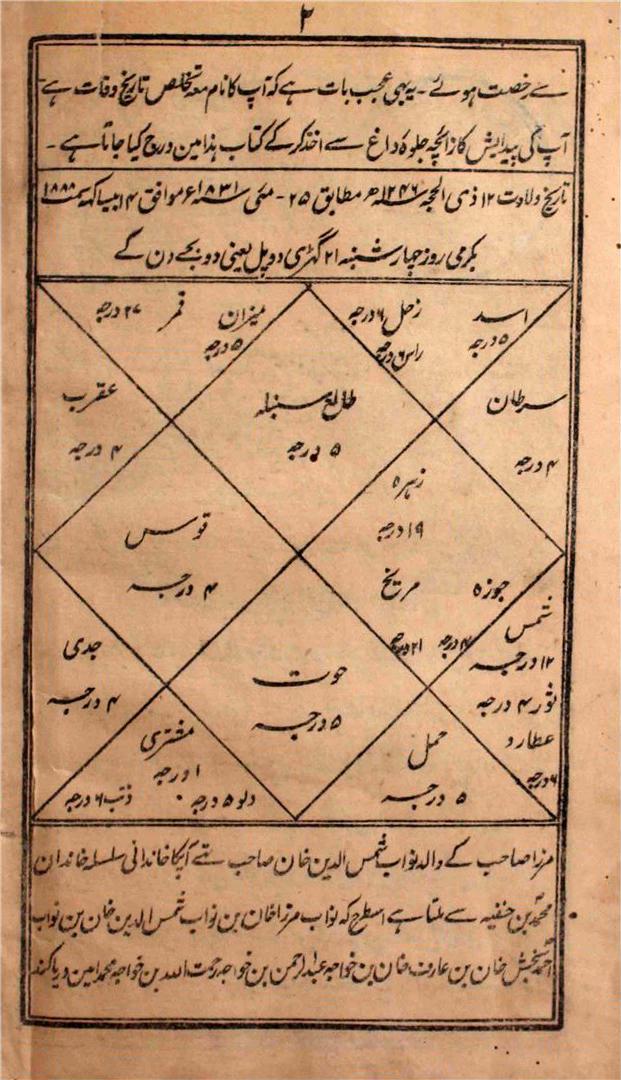 ۲
نے رخصت ہوئے ۔ یہ بھی عجب بات ہے کہ آپ کا نام معہ تخلص تاریخ وفات ہے
آپ کی پیدایش کا زائچہ جلوۂ داغ سے اخذ کر کے کتاب ہذا مین درج کیا جاتا ہے ۔
تاریخ ولادت ۱۲ ذی الحجہ سنہ ۱۲۴۶ھ مطابق ۲۵ - مئی سنہ ۱۸۳۱ء موافق ۱۴ بیساکھ سمت ۱۸۸۸
بکرمی روز چہار شنبہ ۲۱ گھڑی دو پل یعنی دو بجے دن کے
اسد
۵ درجہ
زحل ۶ درجہ
راس ۶ درجہ
میزان
۵ درجہ
قمر
۲۷ درجہ
سرطان
۴ درجہ
طالع سنبلہ
۵ درجہ
عقرب
۴ درجہ
زہرہ
۱۹ درجہ
مریخ
۲۱ درجہ
جوزہ
۴ درجہ
قوس
۴ درجہ
شمس
۱۲ درجہ
ثور ۴ درجہ
عطارد
۶ درجہ
حوت
۵ درجہ
جدی
۴ درجہ
حمل
۵ درجہ
مشتری
۱ درجہ
دلو ۵ درجہ
ذنب ۶ درجہ
مرزا صاحب کے والد نواب شمس الدین خان صاحب تھے آپکا خاندانی سلسلہ خاندان
محمد بن حنفیہ سے ملتا ہے اسطرح کہ نواب مرزا خان بن نواب شمس الدین خان بن نواب
احمد بخش خان بن عارف خان بن خواجہ عبدالرحمن بن خواجہ رحمت اللہ بن خواجہ محمد امین دریا کند